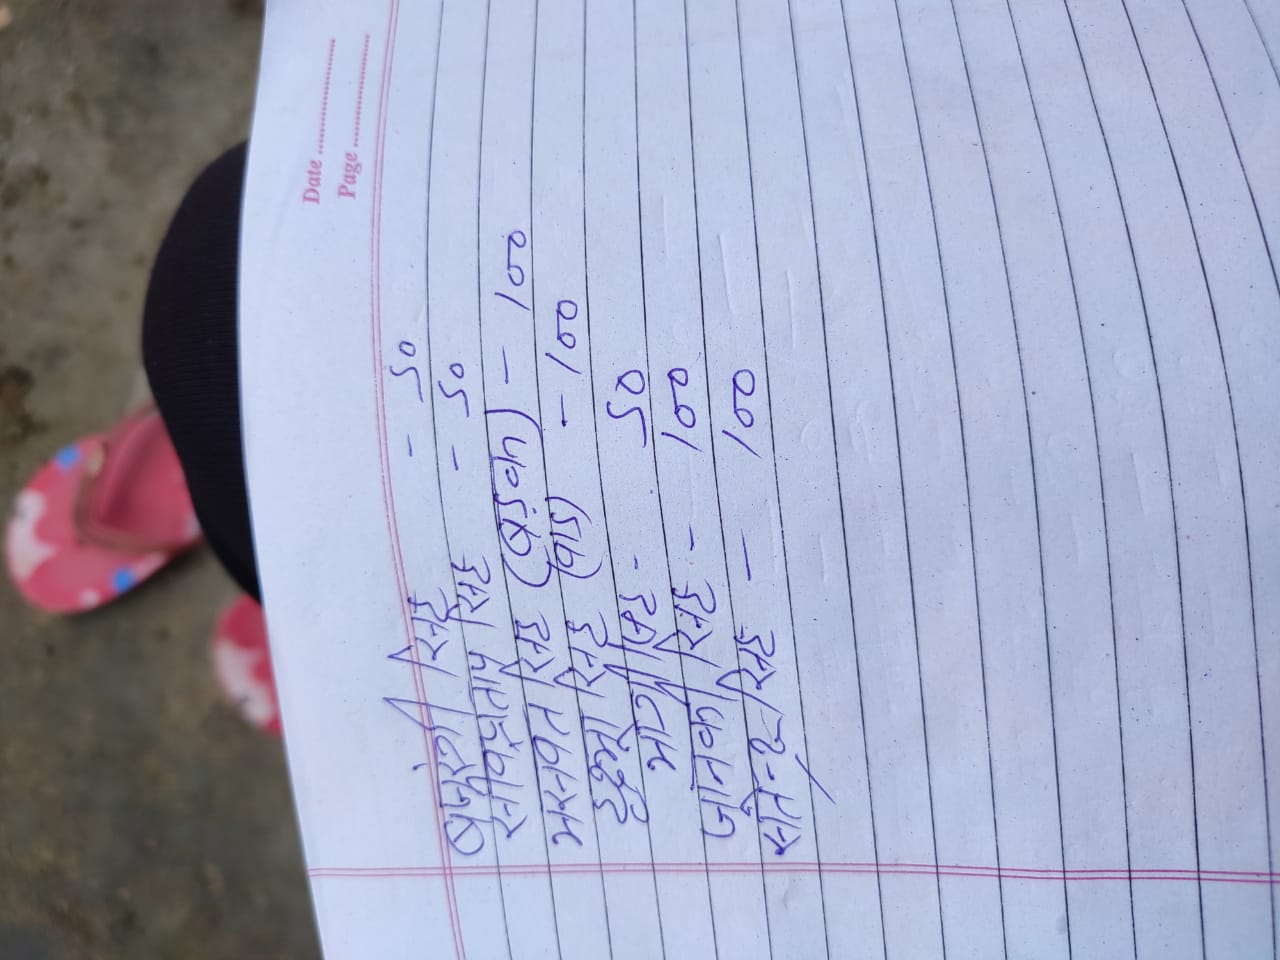 Date ...................
Page ...................
बजरंगी सिंह - 50
सीवप्रताप सिंह - 50
भसवत सिंह (बड़का) - 100
सिंह (वाड) - 100
भोगी सिंह - 50
जानकी सिंह - 100
सतेन्द्र सिंह - 100